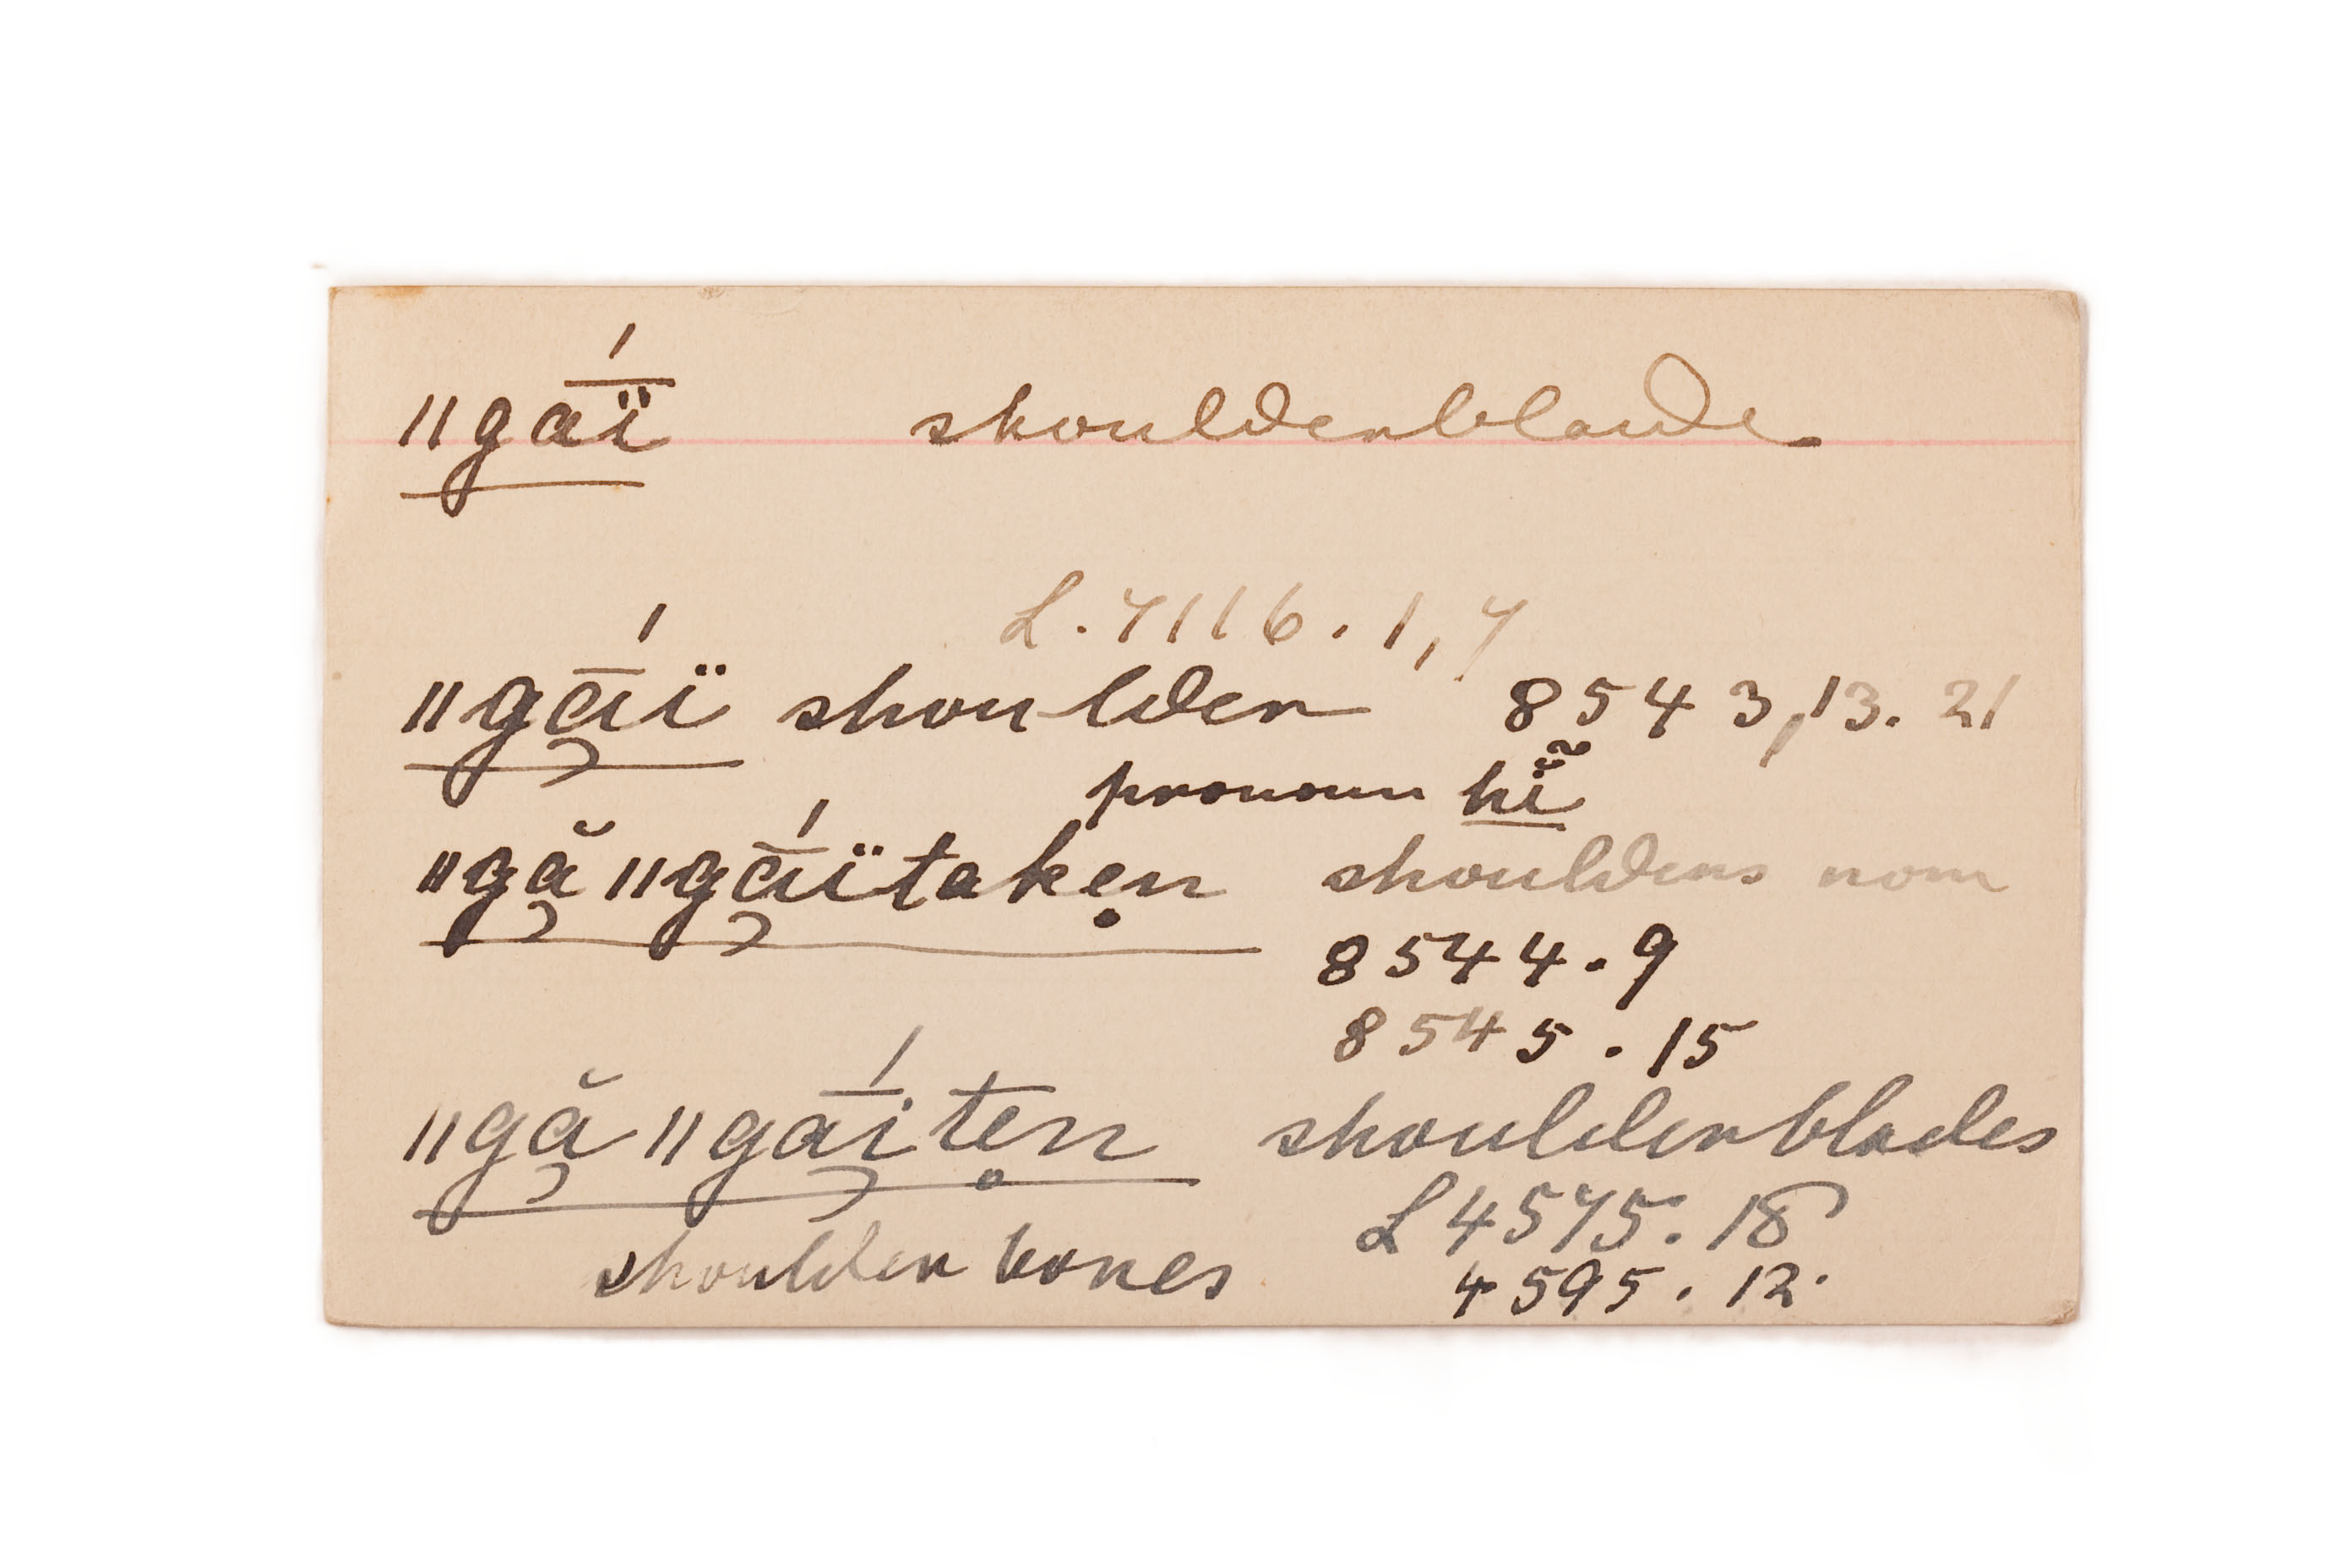 ǁga̅́ï shoulderblade
L. 7116. 1, 7
ǁgā̯́ï shoulder 8543, 13. 21
pronoun hĩ̈
ǁgă̯ǁgā̯́ïtakẹn shoulders nom
8544. 9
8545. 15
ǁgă̯ǁgā̯́itẹn shoulderblades
L 4575. 18
shoulder bones 4595. 12.